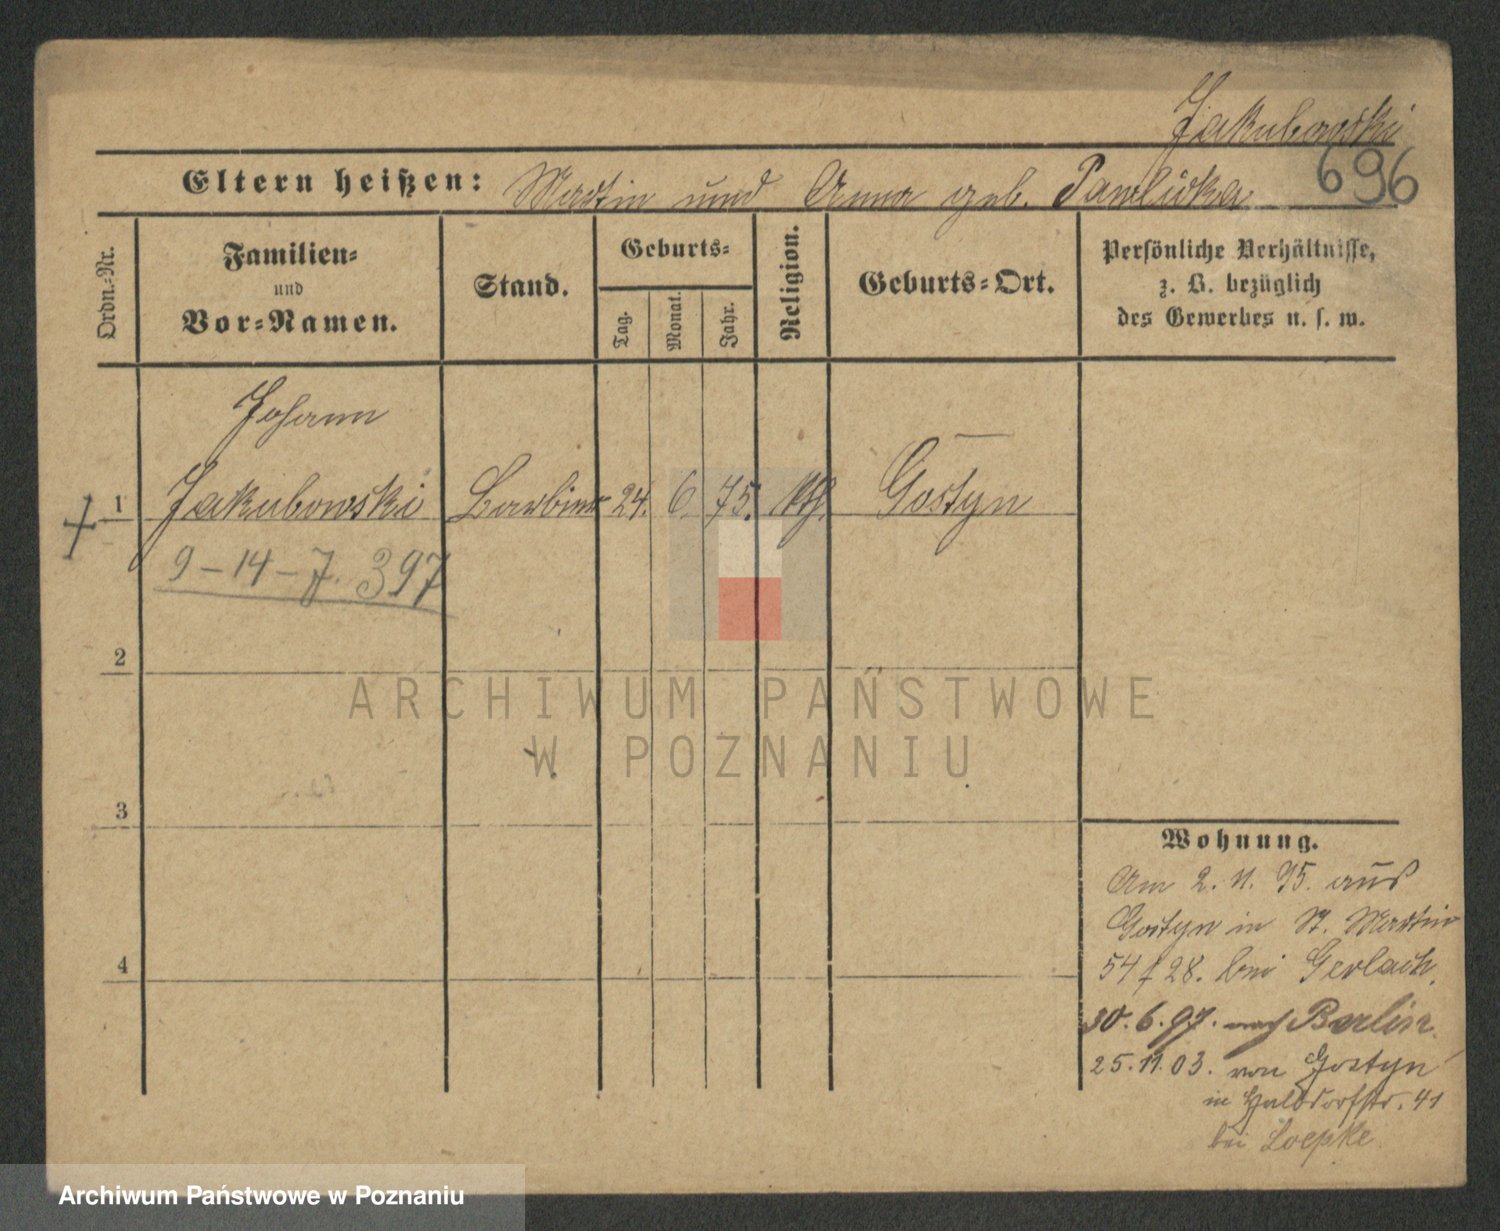 Jakubowski
696
Eltern heißen: Martin und Anna geb. Pawlicka
Ordn.-Nr.
Familien-
und
Vor-Namen.
Stand.
Geburts-
Tag.
Monat.
Jahr.
Religion.
Geburts-Ort.
Persönliche Verhältnisse,
z. B. bezüglich
des Gewerbes u. s. w.
Johann
1 Jakubowski Barbier 24. 6. 75. kth. Gostyn
9-14-7. 397
2
ARCHIWUM PAŃSTWOWE
W POZNANIU
3
Wohnung.
Am 2. 11. 95. aus
Gostyn in St. Martin
54/28. bei Gerlach.
30. 6. 97. nach Berlin.
25. 11. 03. von Gostyn
in Halbdorfstr. 41
bei Loepke
4
Archiwum Państwowe w Poznaniu